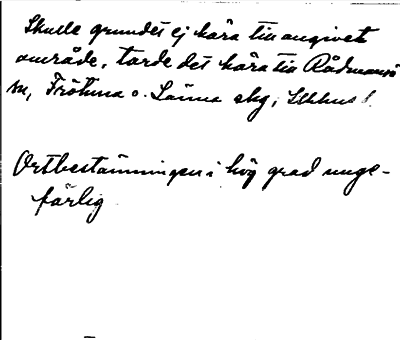 Skulle grundet ej höra till angivet
område, torde det höra till Rådmansö
sn, Frötuna o. Länna skg, Sthlms l.
Ortbestämningen i hög grad unge-
färlig